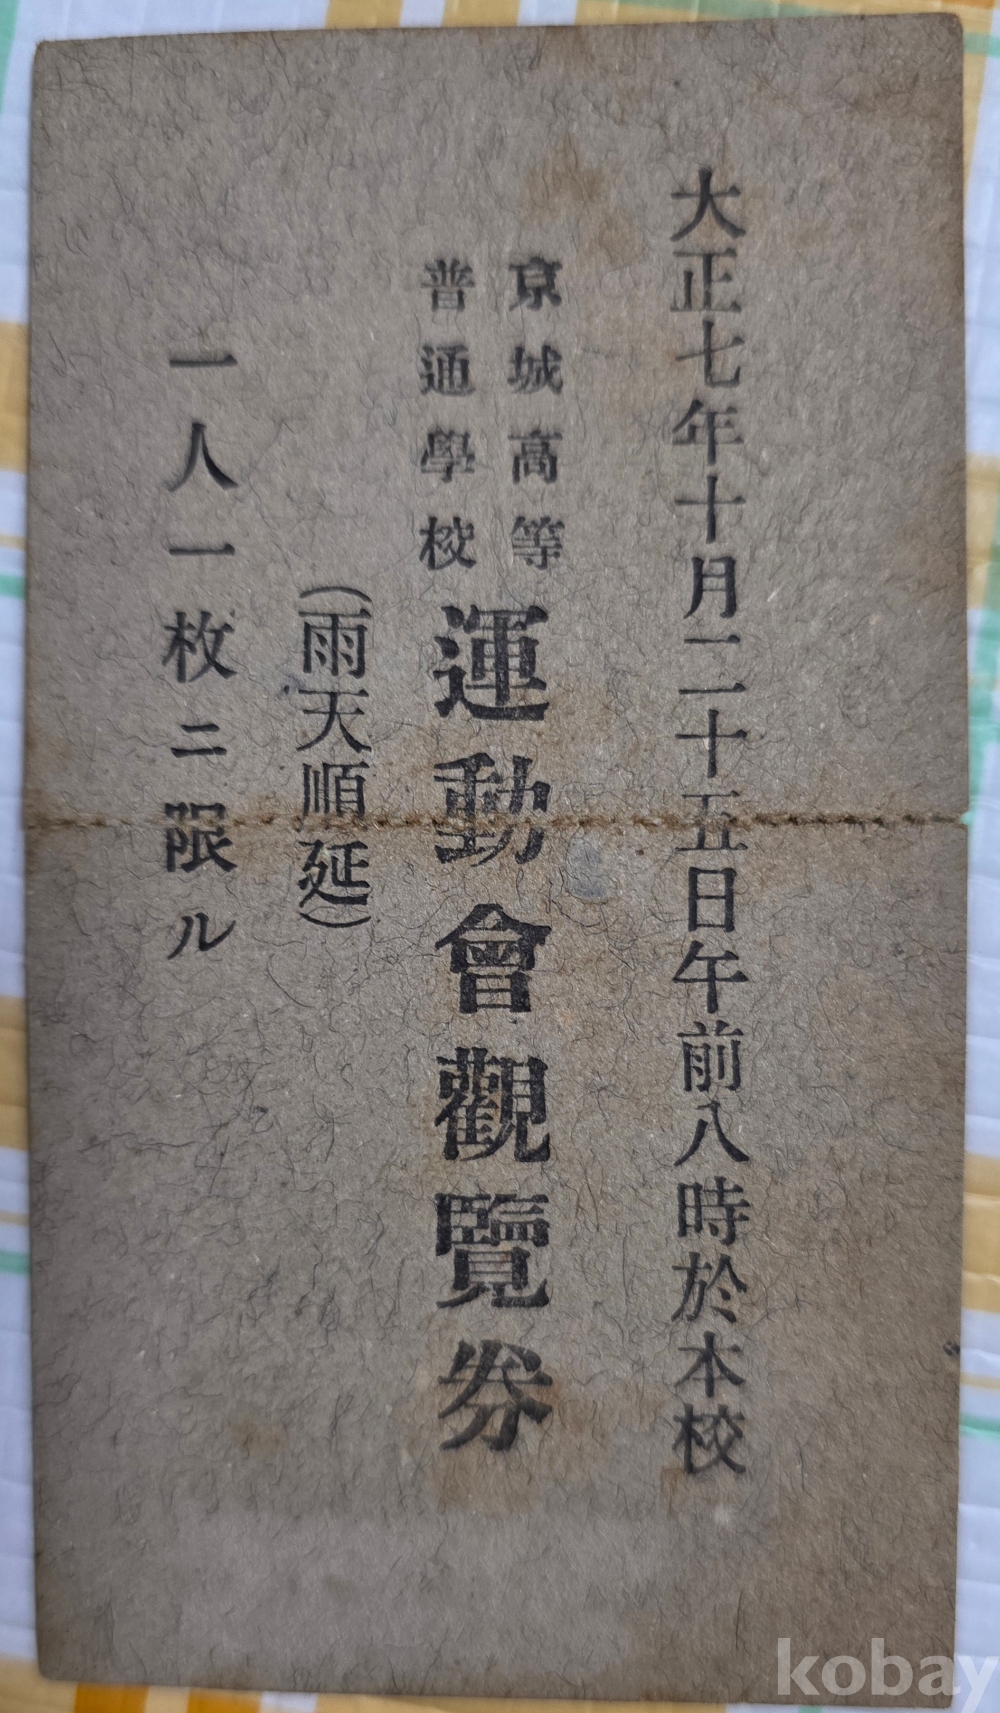 大正七年十月二十五日午前八時於本校
京城高等
普通學校
運動會觀覽券
(雨天順延)
一人一枚ニ限ル
kobay